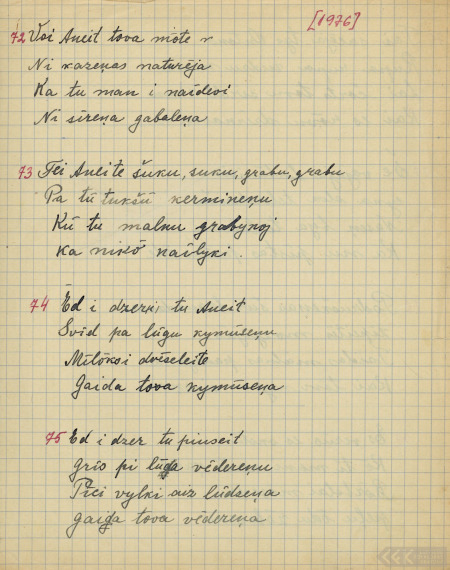 [1976]
72 Voi Aneit tova mōte r
Ni kazeņas naturēja
Ka tu man i naidevi
Ni sīreņa gabaleņa
73 Tei Aneite šuku, suku, grabu, grabu
Pa tū tukšū kermineņu
Kū tu malnu grabynoj
Ka nikō nailyki.
74 Ēd i dzerni tu Aneit
Svid pa lūgu kymūseņu
Mīlōkoi dvēseleite
Gaida tova kymūseņa
75 Ed i dzer tu piuseit
grīs pi lūga vēdereņu
Pīci vylki aiz lūdzeņa
gaida tova vēdereņa